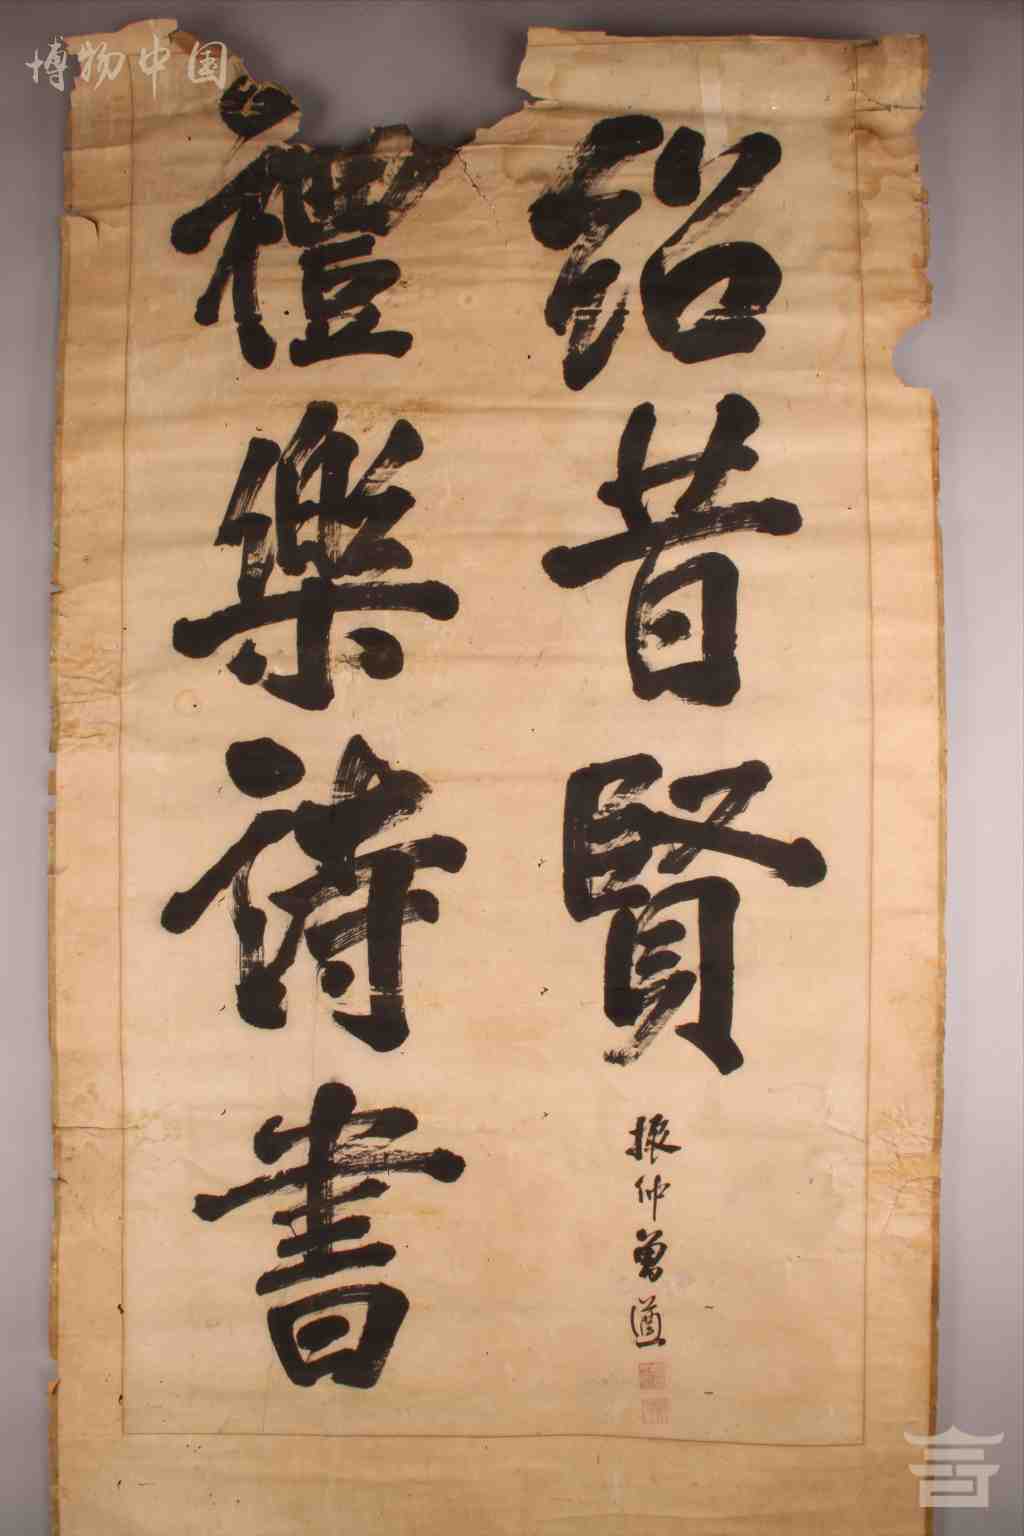 博物中国
禮樂詩書
紹昔賢
振仲曾遒